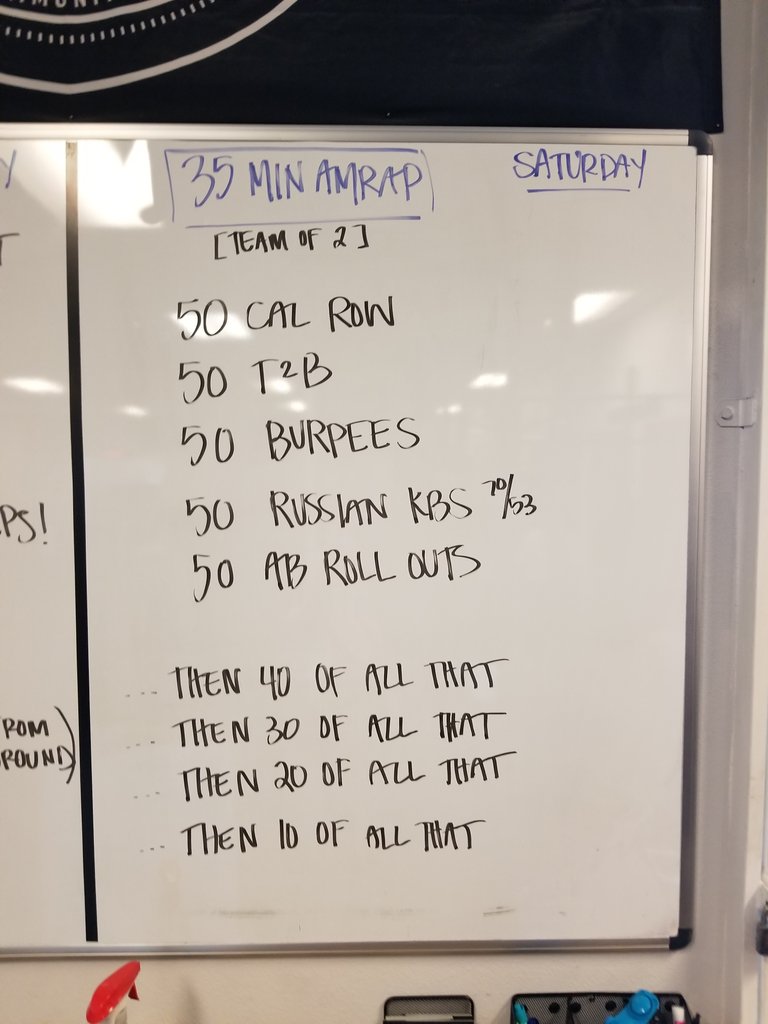 35 MIN AMRAP
SATURDAY
[TEAM OF 2]
50 CAL ROW
50 T2B
50 BURPEES
50 RUSSIAN KBS 70/53
50 AB ROLL OUTS
... THEN 40 OF ALL THAT
... THEN 30 OF ALL THAT
... THEN 20 OF ALL THAT
... THEN 10 OF ALL THAT
PS!
ROM
ROUND)